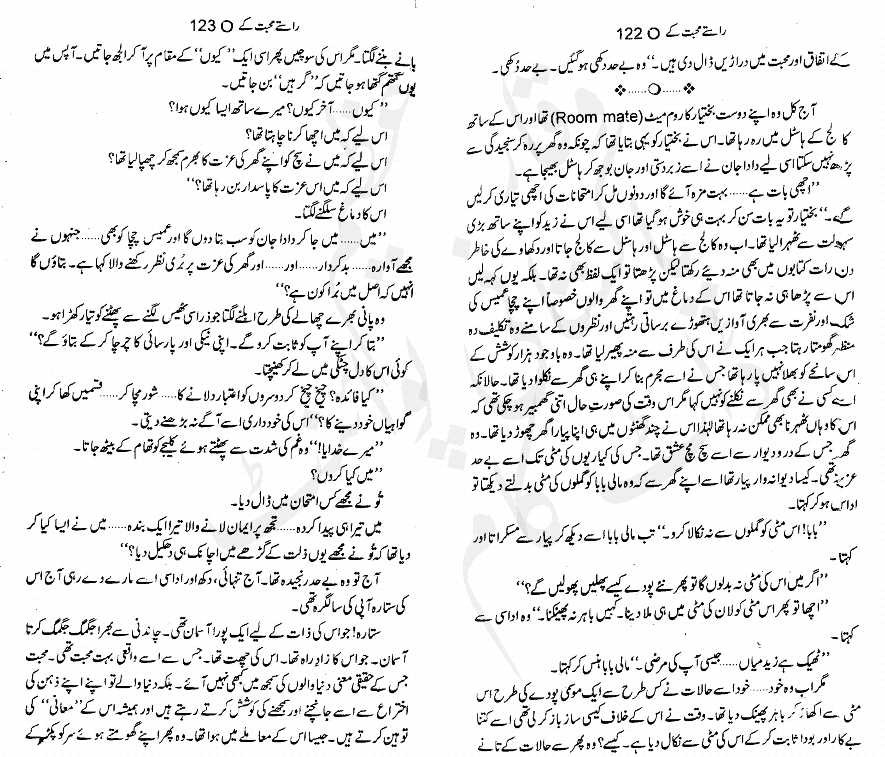 راستے محبت کے O 122
کے اتفاق اور محبت میں دراڑیں ڈال دی ہیں۔“ وہ بے حد دکھی ہو گئیں۔ بے حد دُکھی۔
❖......O......❖
آج کل وہ اپنے دوست بختیار کا روم میٹ (Room mate) تھا اور اس کے ساتھ
کالج کے ہاسٹل میں رہ رہا تھا۔ اس نے بختیار کو یہی بتایا تھا کہ چونکہ وہ گھر پر رہ کر سنجیدگی سے
پڑھ نہیں سکتا اسی لیے دادا جان نے اسے زبردستی اور جان بوجھ کر ہاسٹل بھیجا ہے۔
”اچھی بات ہے...... بہت مزہ آئے گا اور دونوں مل کر امتحانات کی اچھی تیاری کر لیں
گے۔“ بختیار تو یہ بات سن کر بہت ہی خوش ہو گیا تھا اسی لیے اس نے زید کو اپنے ساتھ بڑی
سہولت سے ٹھہرا لیا تھا۔ اب وہ کالج سے ہاسٹل اور ہاسٹل سے کالج جاتا اور دکھاوے کی خاطر
دن رات کتابوں میں بھی منہ دیئے رکھتا لیکن پڑھتا تو ایک لفظ بھی نہ تھا۔ بلکہ یوں کہہ لیں
اس سے پڑھا ہی نہ جاتا تھا اس کے دماغ میں تو اپنے گھر والوں خصوصاً اپنے چچا عمیس کی
شک اور نفرت سے بھری آوازیں ہتھوڑے برساتی رہتیں اور نظروں کے سامنے وہ تکلیف دہ
منظر گھومتا رہتا جب ہر ایک نے اس کی طرف سے منہ پھیر لیا تھا۔ وہ باوجود ہزار کوشش کے
اس سانحے کو بھلا نہیں پا رہا تھا جس نے اسے مجرم بنا کر اپنے ہی گھر سے نکلوا دیا تھا۔ حالانکہ
اسے کسی نے بھی گھر سے نکلنے کو نہیں کہا تھا مگر اس وقت کی صورتِ حال اتنی گھمبیر ہو چکی تھی کہ
اس کا وہاں ٹھہرنا بھی ممکن نہ رہا تھا لہٰذا اس نے چند گھنٹوں میں ہی اپنا پیارا گھر چھوڑ دیا تھا۔ وہ
گھر جس کے در و دیوار سے اسے سچ مچ عشق تھا۔ جس کی کیاریوں کی مٹی تک اسے بے حد
عزیز تھی۔ کیسا دیوانہ وار پیار تھا اسے اپنے گھر سے کہ وہ مالی بابا کو گملوں کی مٹی بدلتے دیکھتا تو
اداس ہو کر کہتا۔
”بابا! اس مٹی کو گملوں سے نہ نکالا کرو۔“ تب مالی بابا اسے دیکھ کر پیار سے مسکراتا اور
کہتا۔
”اگر میں اس کی مٹی نہ بدلوں گا تو پھر نئے پودے کیسے پھلیں پھولیں گے؟“
”اچھا تو پھر اس مٹی کو لان کی مٹی میں ہی ملا دینا۔ کہیں باہر نہ پھینکنا۔“ وہ اداسی سے
کہتا۔
”ٹھیک ہے زید میاں...... جیسی آپ کی مرضی۔“ مالی بابا ہنس کر کہتا۔
مگر اب وہ خود...... خود اسے حالات نے کس طرح سے ایک موسمی پودے کی طرح اس
مٹی سے اکھاڑ کر باہر پھینک دیا تھا۔ وقت نے اس کے خلاف کیسی ساز باز کر لی تھی اسے کتنا
بے کار اور بودا ثابت کر کے اس کی مٹی سے نکال دیا ہے۔ کیسے؟ وہ پھر سے حالات کے تانے
راستے محبت کے O 123
بانے بننے لگتا۔ مگر اس کی سوچیں پھر اسی ایک ”کیوں“ کے مقام پر آ کر الجھ جاتیں۔ آپس میں
یوں گتھم گتھا ہو جاتیں کہ ”گرہیں“ بن جاتیں۔
”کیوں...... آخر کیوں؟ میرے ساتھ ایسا کیوں ہوا؟
اس لیے کہ میں اچھا کرنا چاہتا تھا؟
اس لیے کہ میں نے سچ کو اپنے گھر کی عزت کا بھرم سمجھ کر چھپا لیا تھا؟
اس لیے کہ میں اس عزت کا پاسدار بن رہا تھا؟“
اس کا دماغ سلگنے لگتا۔
”میں...... میں جا کر دادا جان کو سب بتا دوں گا اور عمیس چچا کو بھی...... جنہوں نے
مجھے آوارہ...... بد کردار...... اور...... اور گھر کی عزت پر بُری نظر رکھنے والا کہا ہے۔ بتاؤں گا
انہیں کہ اصل میں بُرا کون ہے؟“
وہ پانی بھرے چھالے کی طرح ابلنے لگتا جو ذرا سی ٹھیس لگنے سے پھٹنے کو تیار کھڑا ہو۔
”بتا کر اپنے آپ کو ثابت کرو گے۔ اپنی نیکی اور پارسائی کا چرچا کر کے بتاؤ گے؟“
کوئی اس کا دل چٹکی میں لے کر کھینچتا۔
”کیا فائدہ؟ چیخ چیخ کر دوسروں کو اعتبار دلانے کا...... شور مچا کر...... قسمیں کھا کر اپنی
گواہیاں خود دینے کا؟“ اس کی خود داری اسے آگے نہ بڑھنے دیتی۔
”میرے خدایا!“ وہ غم کی شدت سے پھٹتے ہوئے کلیجے کو تھام کے بیٹھ جاتا۔
”میں کیا کروں؟
تُو نے مجھے کس امتحان میں ڈال دیا۔
میں تیرا ہی پیدا کردہ...... تجھ پر ایمان لانے والا تیرا ایک بندہ...... میں نے ایسا کیا کر
دیا تھا کہ تُو نے مجھے یوں ذلت کے گڑھے میں اچانک ہی دھکیل دیا؟“
آج تو وہ بے حد رنجیدہ تھا۔ آج تنہائی، دکھ اور اداسی اسے مارے دے رہی آج اس
کی ستارہ آپی کی سالگرہ تھی۔
ستارہ! جو اس کی ذات کے لیے ایک پورا آسمان تھی۔ چاندنی سے بھرا جگمگ جگمگ کرتا
آسمان۔ جو اس کا زادِ راہ تھا۔ اس کی چھت تھا۔ جس سے اسے واقعی بہت محبت تھی۔ محبت
جس کے حقیقی معنی دنیا والوں کی سمجھ میں کبھی نہیں آئے۔ بلکہ دنیا والے تو اپنے اپنے ذہن کی
اختراع سے اسے جانچنے اور سمجھنے کی کوشش کرتے رہتے ہیں اور ہمیشہ اس کے ”معانی“ کی
توہین کرتے ہیں۔ جیسا اس کے معاملے میں ہوا تھا۔ وہ پھر اپنے گھومتے ہوئے سر کو پکڑ کے